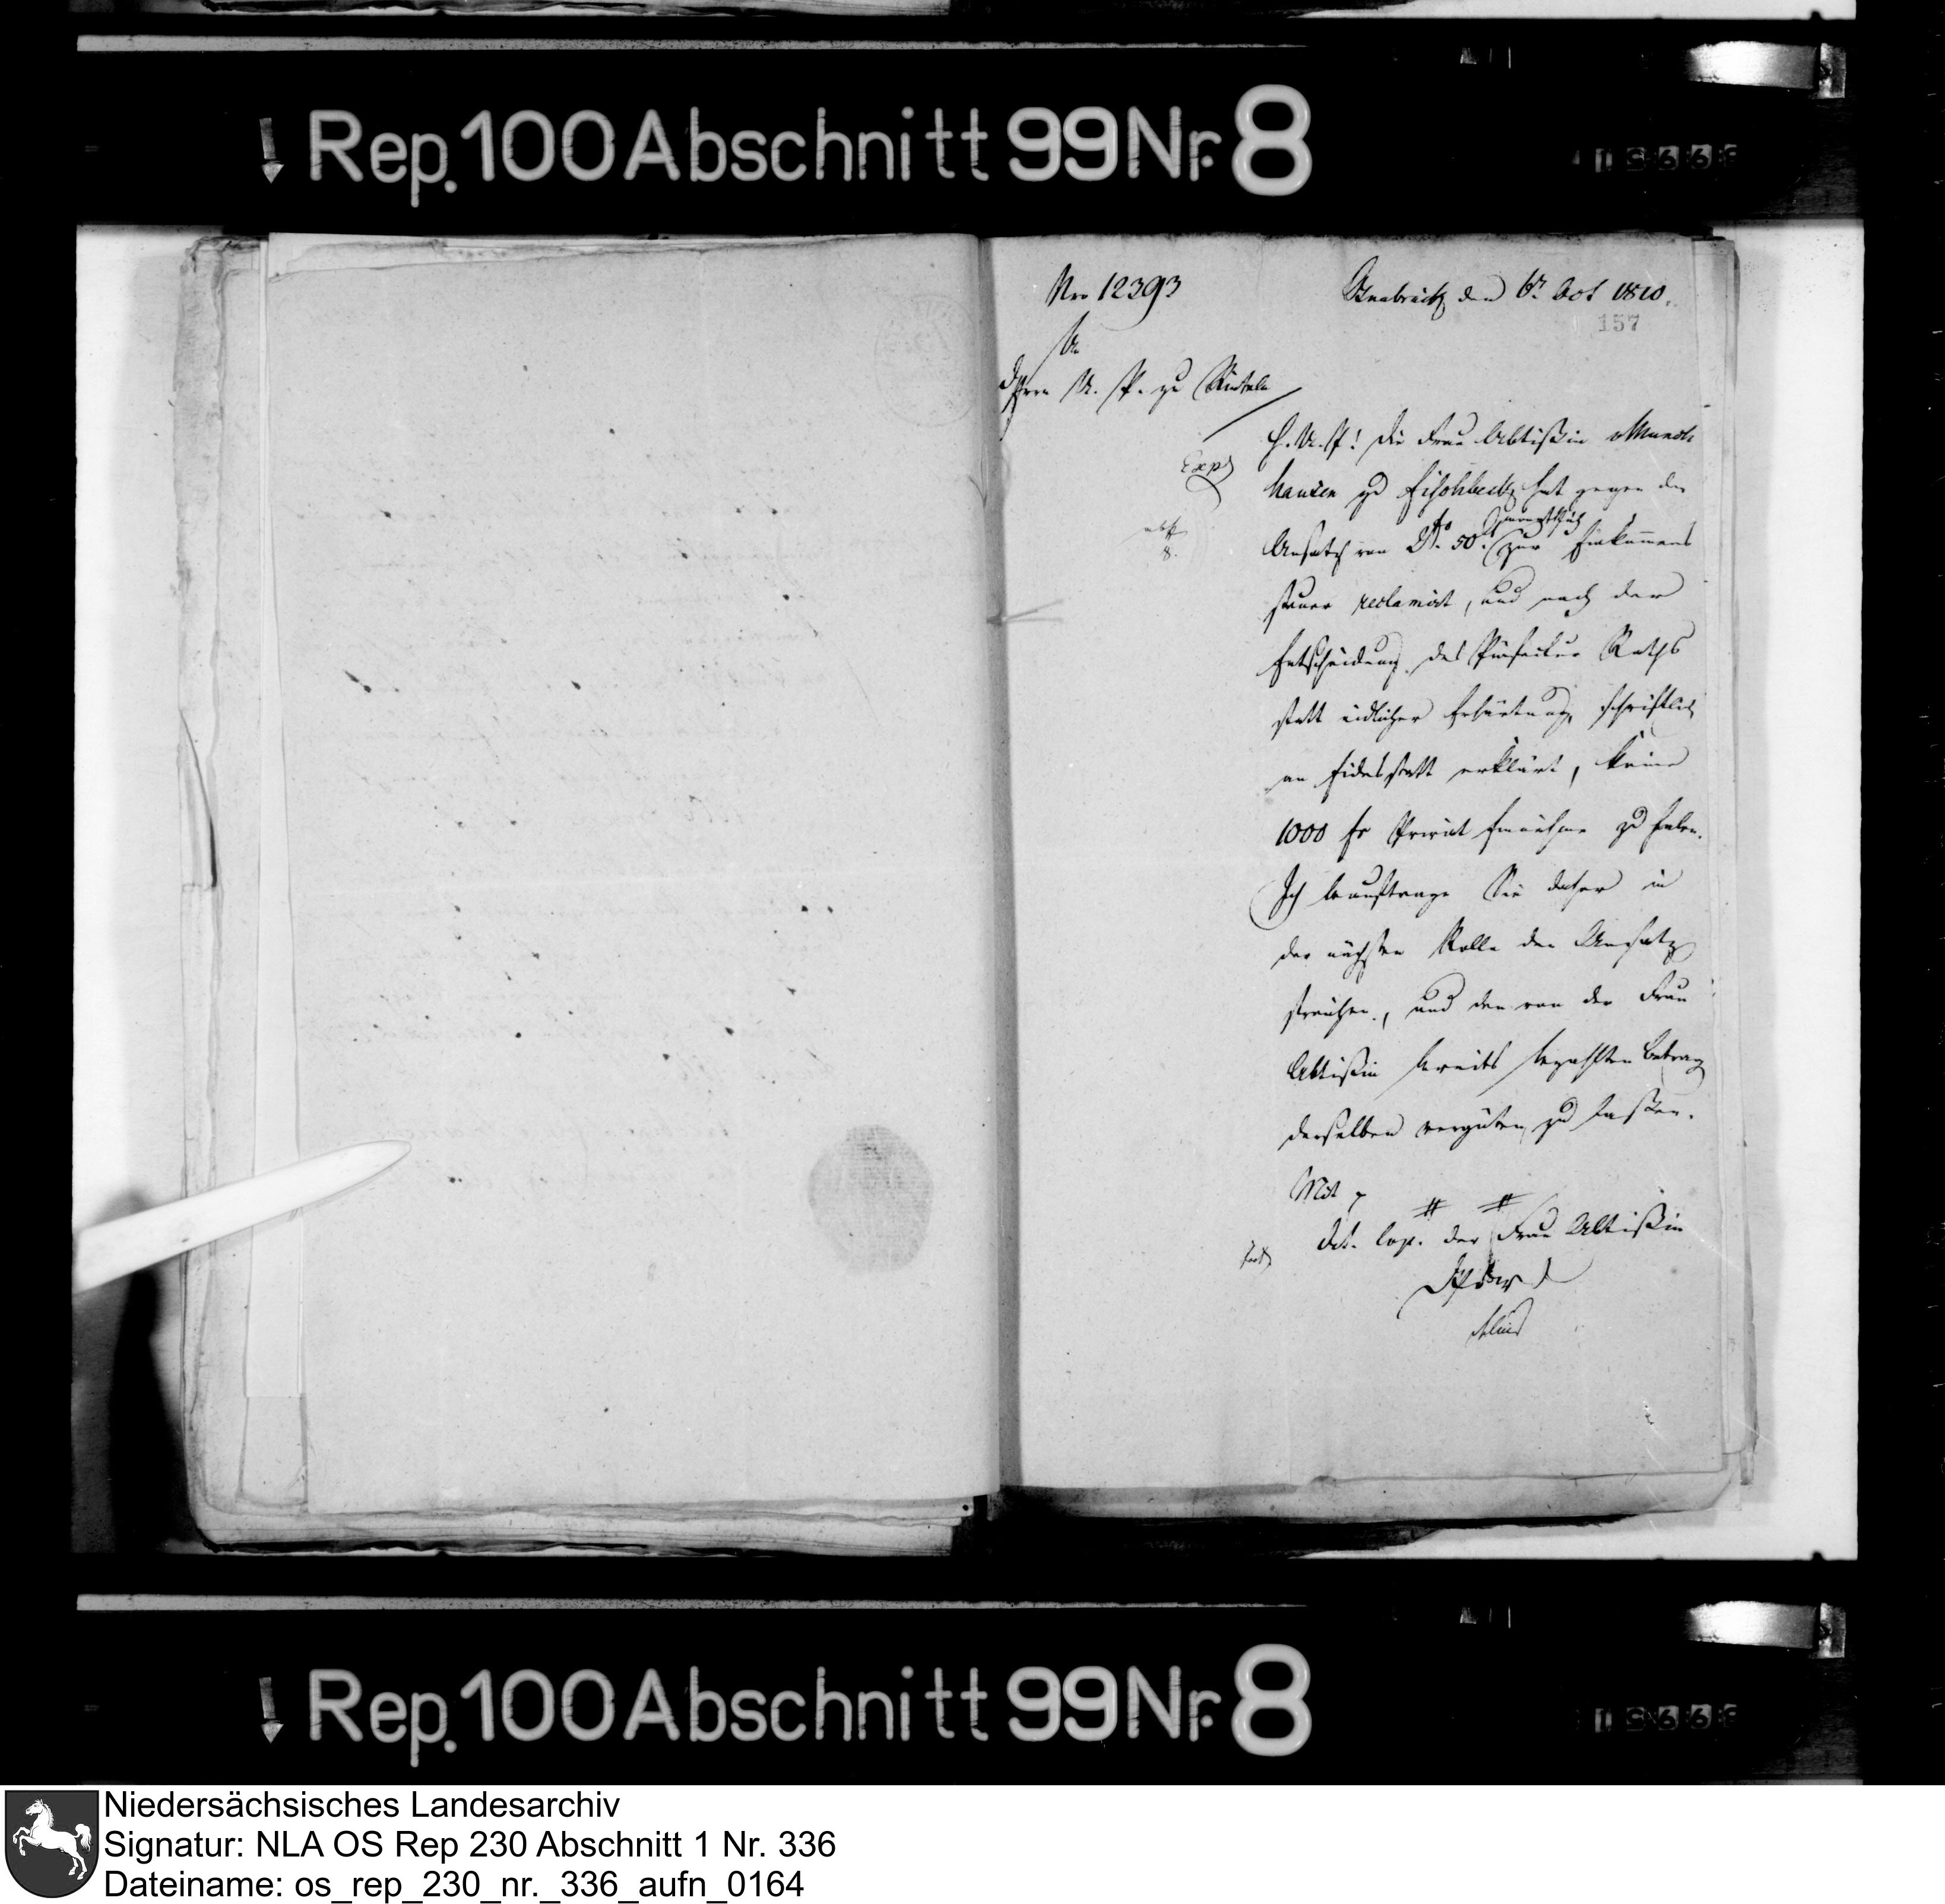 Rep. 100 Abschnitt 99 Nr. 8
Nro 12393
Osnabrück den 6n. Oct 1810.
157
An
Herrn U. P. zu Rinteln
H. U. P! Die Frau Abtißin v Münch
Exp
hausen zu Fischbeck hat gegen den
Ansatz von 50 zur Einkommens
8.
steuer reclamirt, und nach der
Entscheidung des Präfectur Raths
statt eidlicher Erhärtung schriftlich
an Eidesstatt erklärt, keine
1000 fr Privat Einnahme zu haben.
Ich beauftrage Sie daher in
der nächsten Rolle den Ansatz
streichen, und den von der Frau
Abtißin bereits bezahlten Betrag
derselben vergüten zu laßen.
Mit
der Frau Abtißin
Rep. 100 Abschnitt 99 Nr. 8
Niedersächsisches Landesarchiv
Signatur: NLA OS Rep 230 Abschnitt 1 Nr. 336
Dateiname: os_rep_230_nr._336_aufn_0164